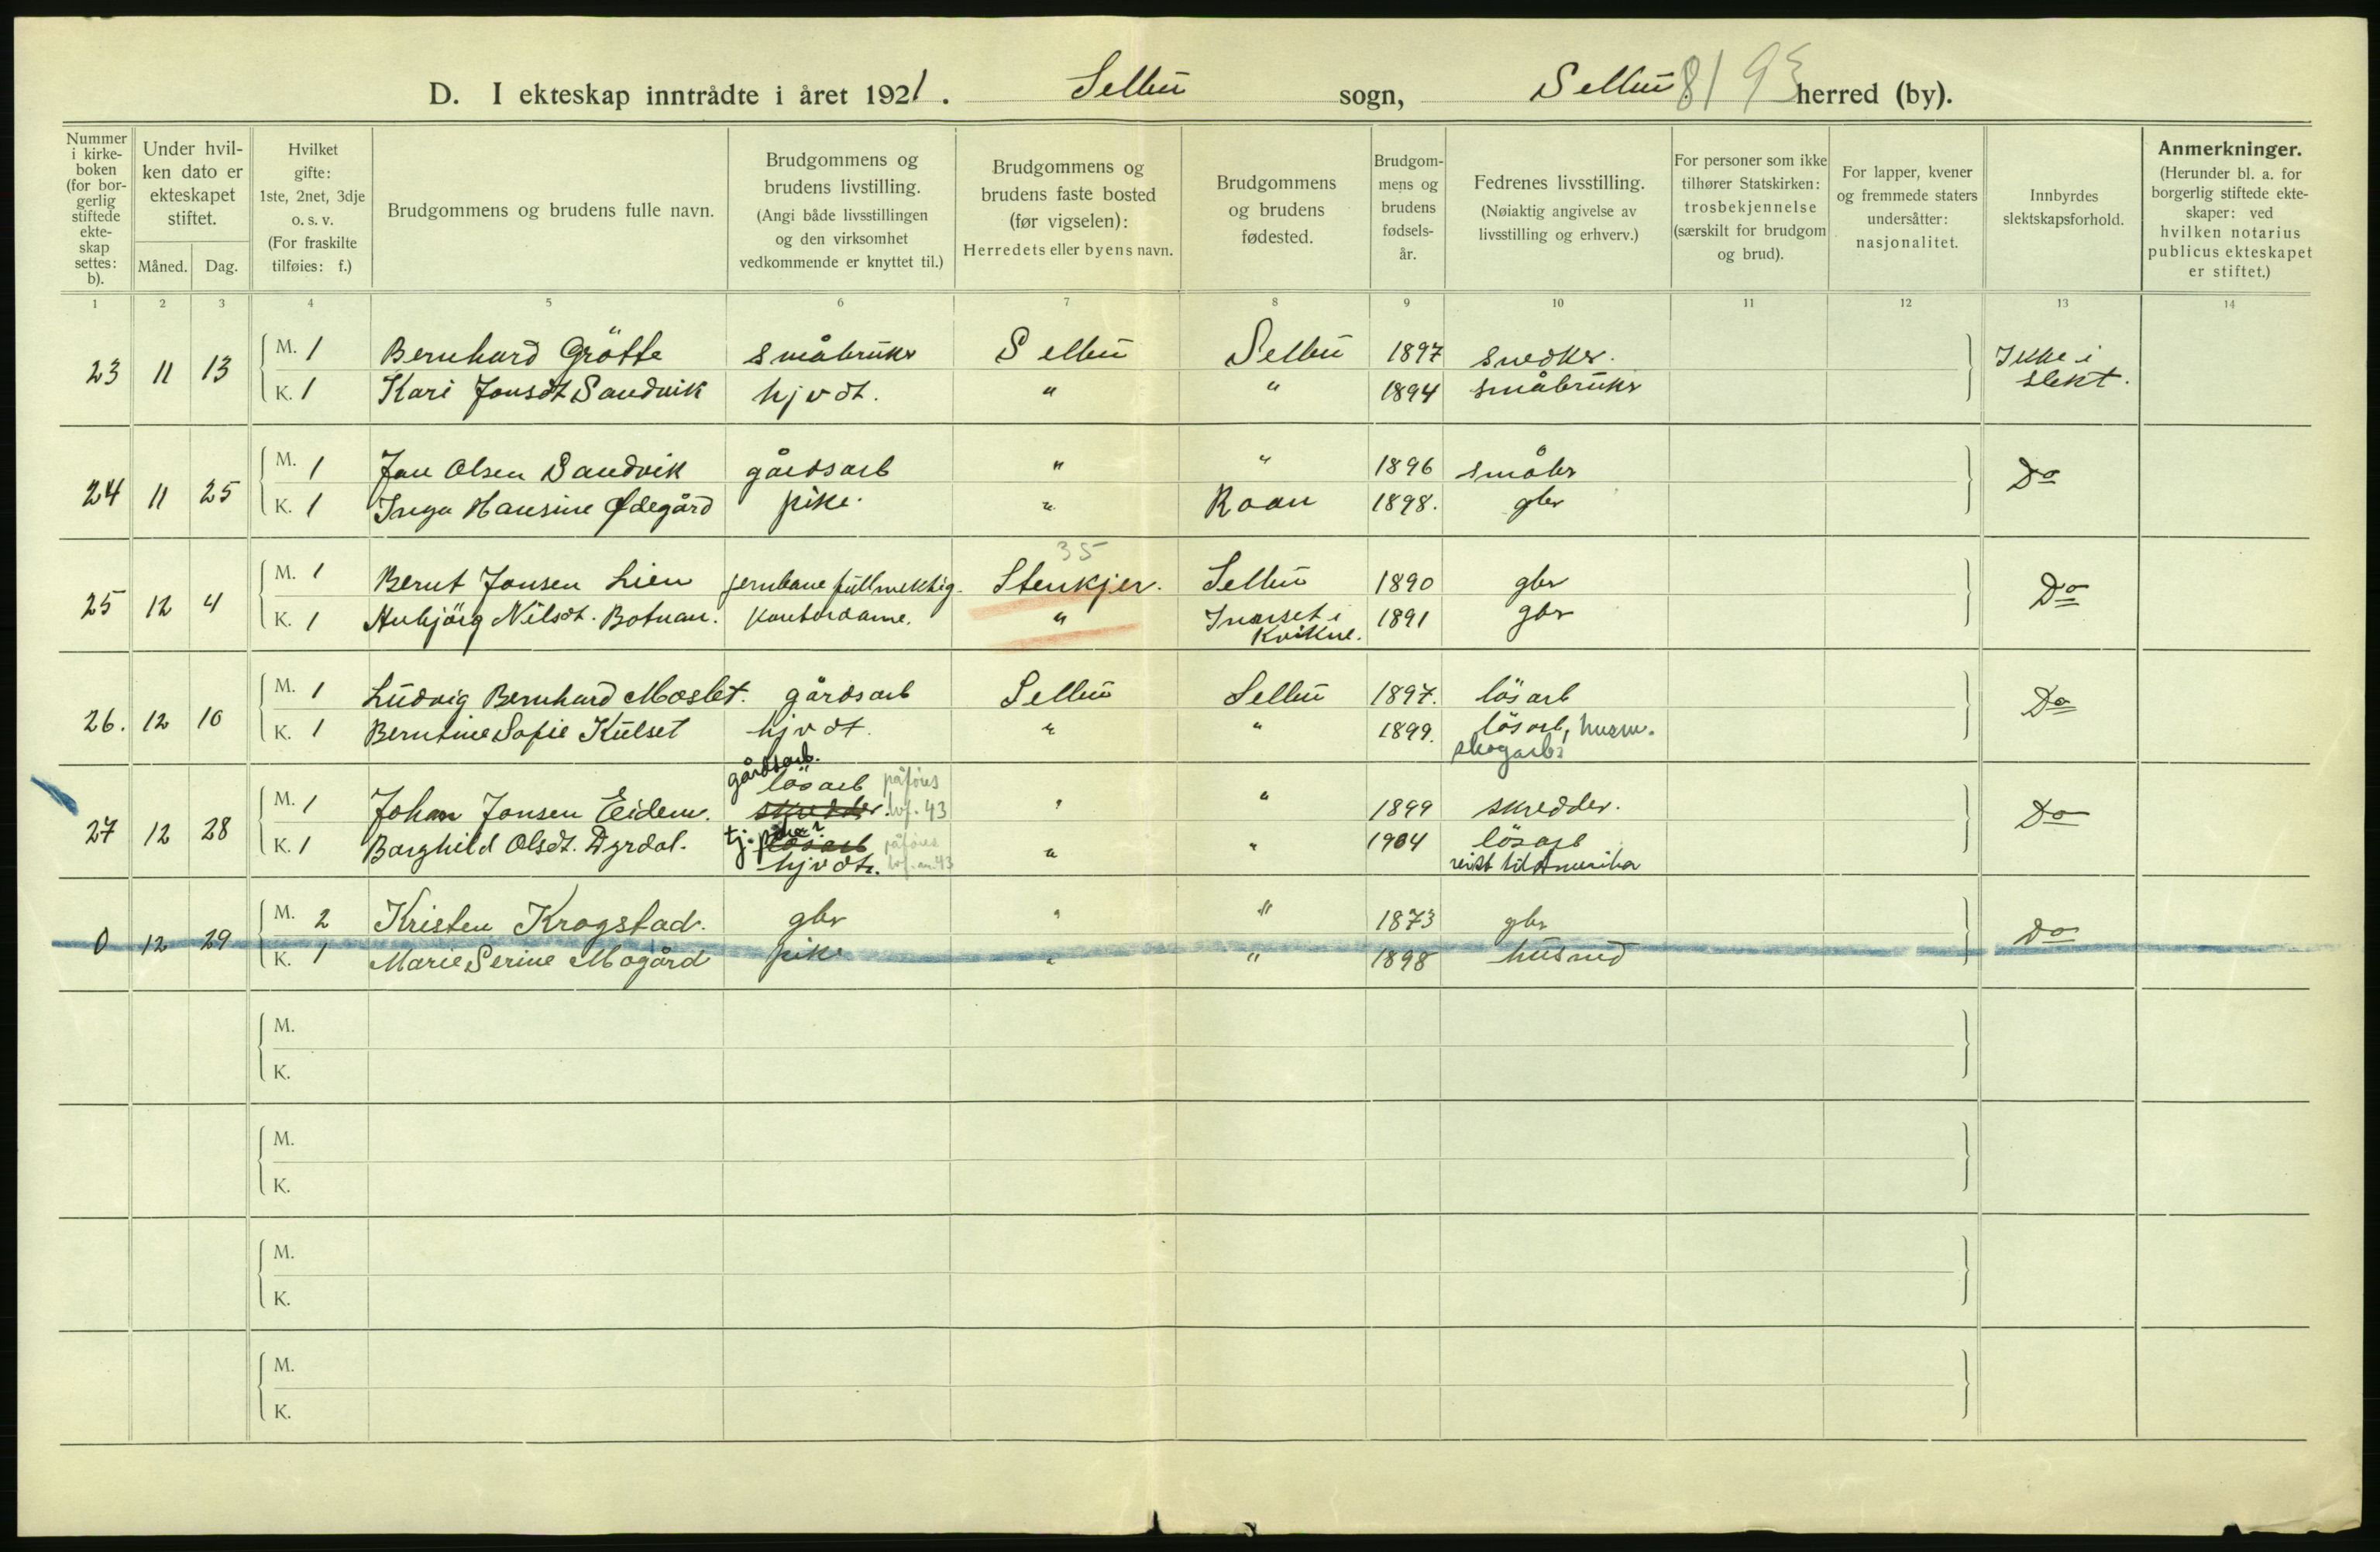 D. I ekteskap inntrådte i året 1921. Selbu sogn, Selbu 8193 herred (by).
Nummer i kirke- boken (for bor- gerlig stiftede ekte- skap settes: b).
Under hvil- ken dato er ekteskapet stiftet.
Måned. Dag.
Hvilket gifte: 1ste, 2net, 3dje o. s. v. (For fraskilte tilføies: f.)
Brudgommens og brudens fulle navn.
Brudgommens og brudens livstilling. (Angi både livsstillingen og den virksomhet vedkommende er knyttet til.)
Brudgommens og brudens faste bosted (før vigselen): Herredets eller byens navn.
Brudgommens og brudens fødested.
Brudgom- mens og brudens fødsels- år.
Fedrenes livsstilling. (Nøiaktig angivelse av livsstilling og erhverv.)
For personer som ikke tilhører Statskirken: trosbekjennelse (særskilt for brudgom og brud).
For lapper, kvener og fremmede staters undersåtter: nasjonalitet.
Innbyrdes slektskapsforhold.
Anmerkninger. (Herunder bl. a. for borgerlig stiftede ekte- skaper: ved hvilken notarius publicus ekteskapet er stiftet.)
1 2 3 4 5 6 7 8 9 10 11 12 13 14
23 11 13 M. 1 Bernhard Grötte småbrukr Selbu Selbu 1897 snedker. Ikke i slekt.
K. 1 Kari Jonsdt Sandvik hjv dt. " " 1894 småbrukr
24 11 25 M. 1 Jon Olsen Sandvik gårdsarb " " 1896 småbr Do
K. 1 Inga Hansine Ødegård pike " Roan 1898. gbr
35
25 12 4 M. 1 Bernt Jonsen Lien jernbanefullmektig. Stenkjer. Selbu 1890 gbr Do
K. 1 Anbjörg Nilsdt. Botnan. kontordame. " Innset i Kvikne. 1891 gbr
26. 12 10 M. 1 Ludvig Bernhard Moslet. gårdsarb Selbu Selbu 1897. lösarb Do
K. 1 Berntine Sofie Kulset hjv dt. " " 1899. lösarb, husm. skogarb.
27 12 28 M. 1 Johan Jonsen Eidem. gårdsarb. lösarb skredder. påføres hvf. 43 " " 1899 skredder. Do
K. 1 Borghild Olsdt. Dyrdal. tj. pike? lösarb hjv dt. påføres " " 1904 lösarb reist til Amerika
0 12 29 M. 2 Kristen Krogstad. gbr " " 1873 gbr Do
K. 1 Marie Serine Mogård pike " " 1898 husmd
M.
K.
M.
K.
M.
K.
M.
K.